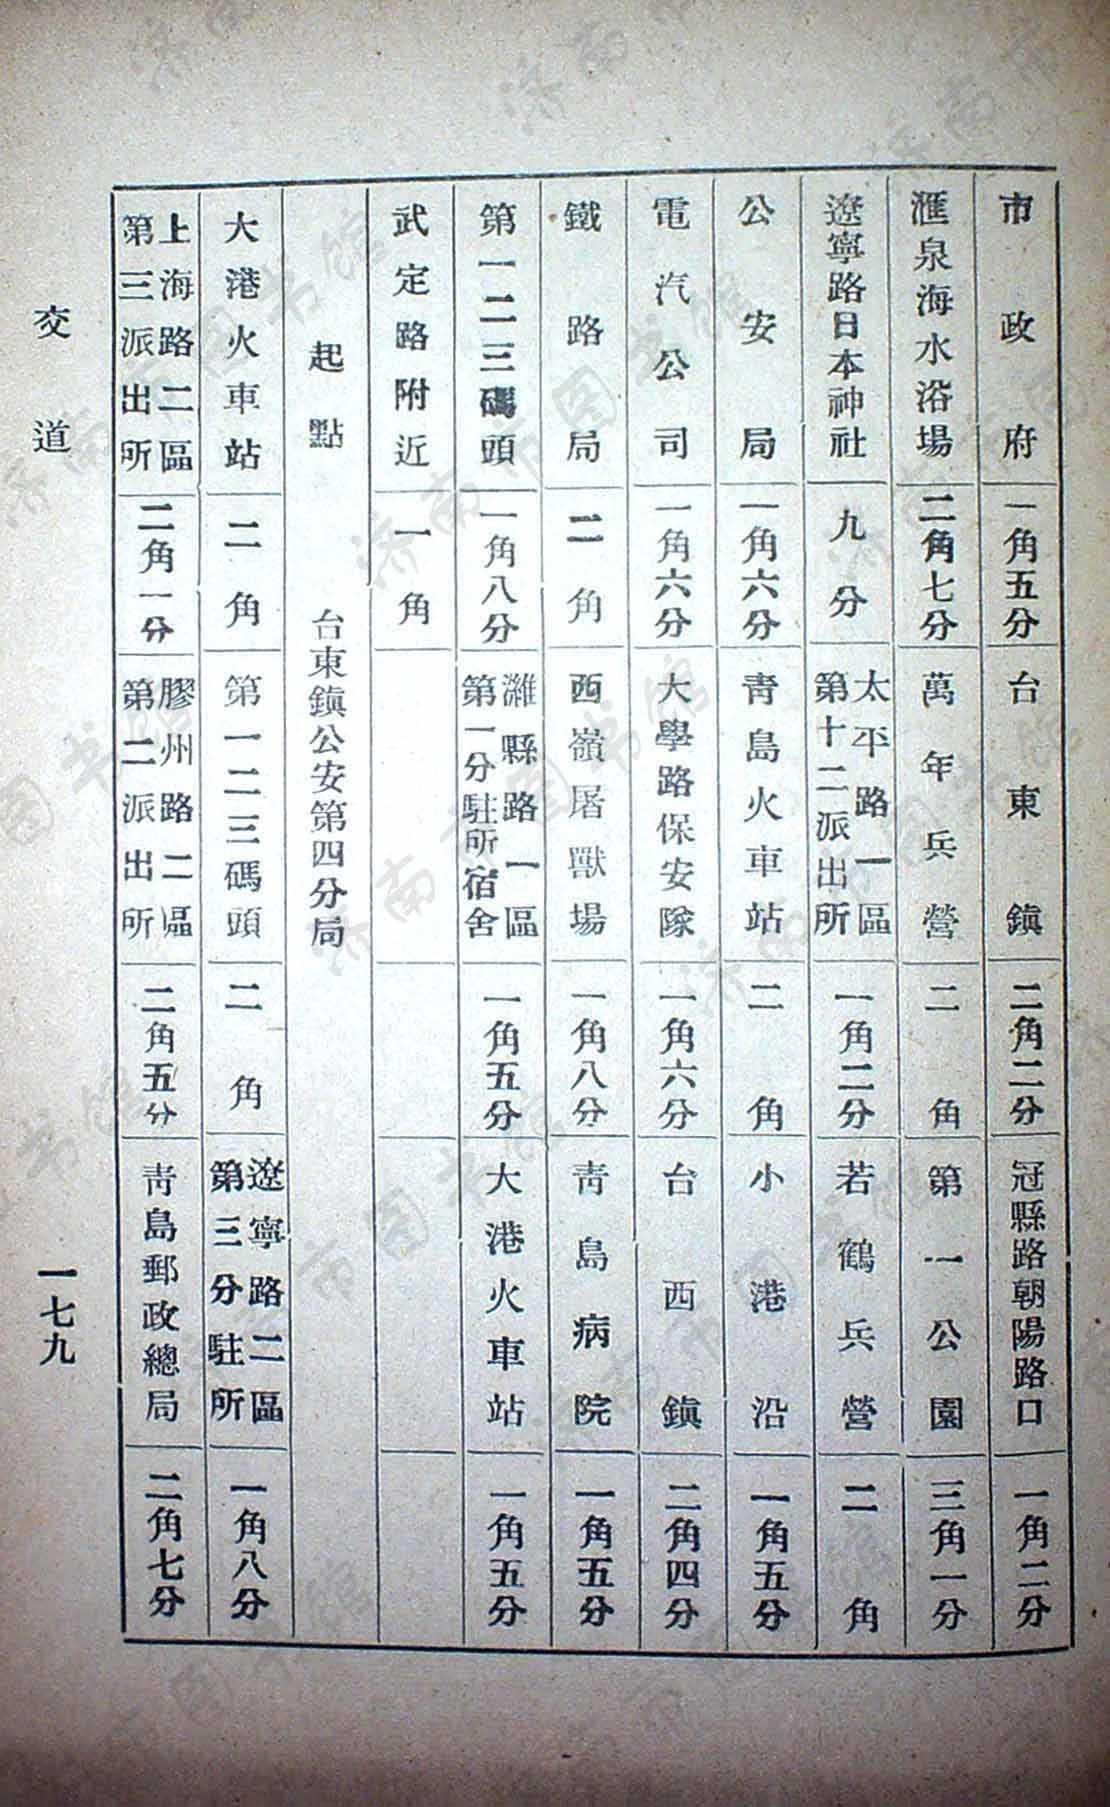 市政府 一角五分 台東鎮 二角二分 冠縣路朝陽路口 一角二分
滙泉海水浴場 二角七分 萬年兵營 二角 第一公園 三角一分
遼寧路日本神社 九分 太平路一區第十二派出所 一角二分 若鶴兵營 二角
公安局 一角六分 青島火車站 二角 小港沿 一角五分
電汽公司 一角六分 大學路保安隊 一角六分 台西鎮 二角四分
鐵路局 二角 西嶺屠獸場 一角八分 青島病院 一角五分
第一二三碼頭 一角八分 濰縣路一區第一分駐所宿舍 一角五分 大港火車站 一角五分
武定路附近 一角
起點 台東鎮公安第四分局
大港火車站 二角 第一二三碼頭 二角 遼寧路二區第三分駐所 一角八分
上海路二區第三派出所 二角一分 膠州路二區第二派出所 二角五分 青島郵政總局 二角七分
交道 一七九
济南市图书馆